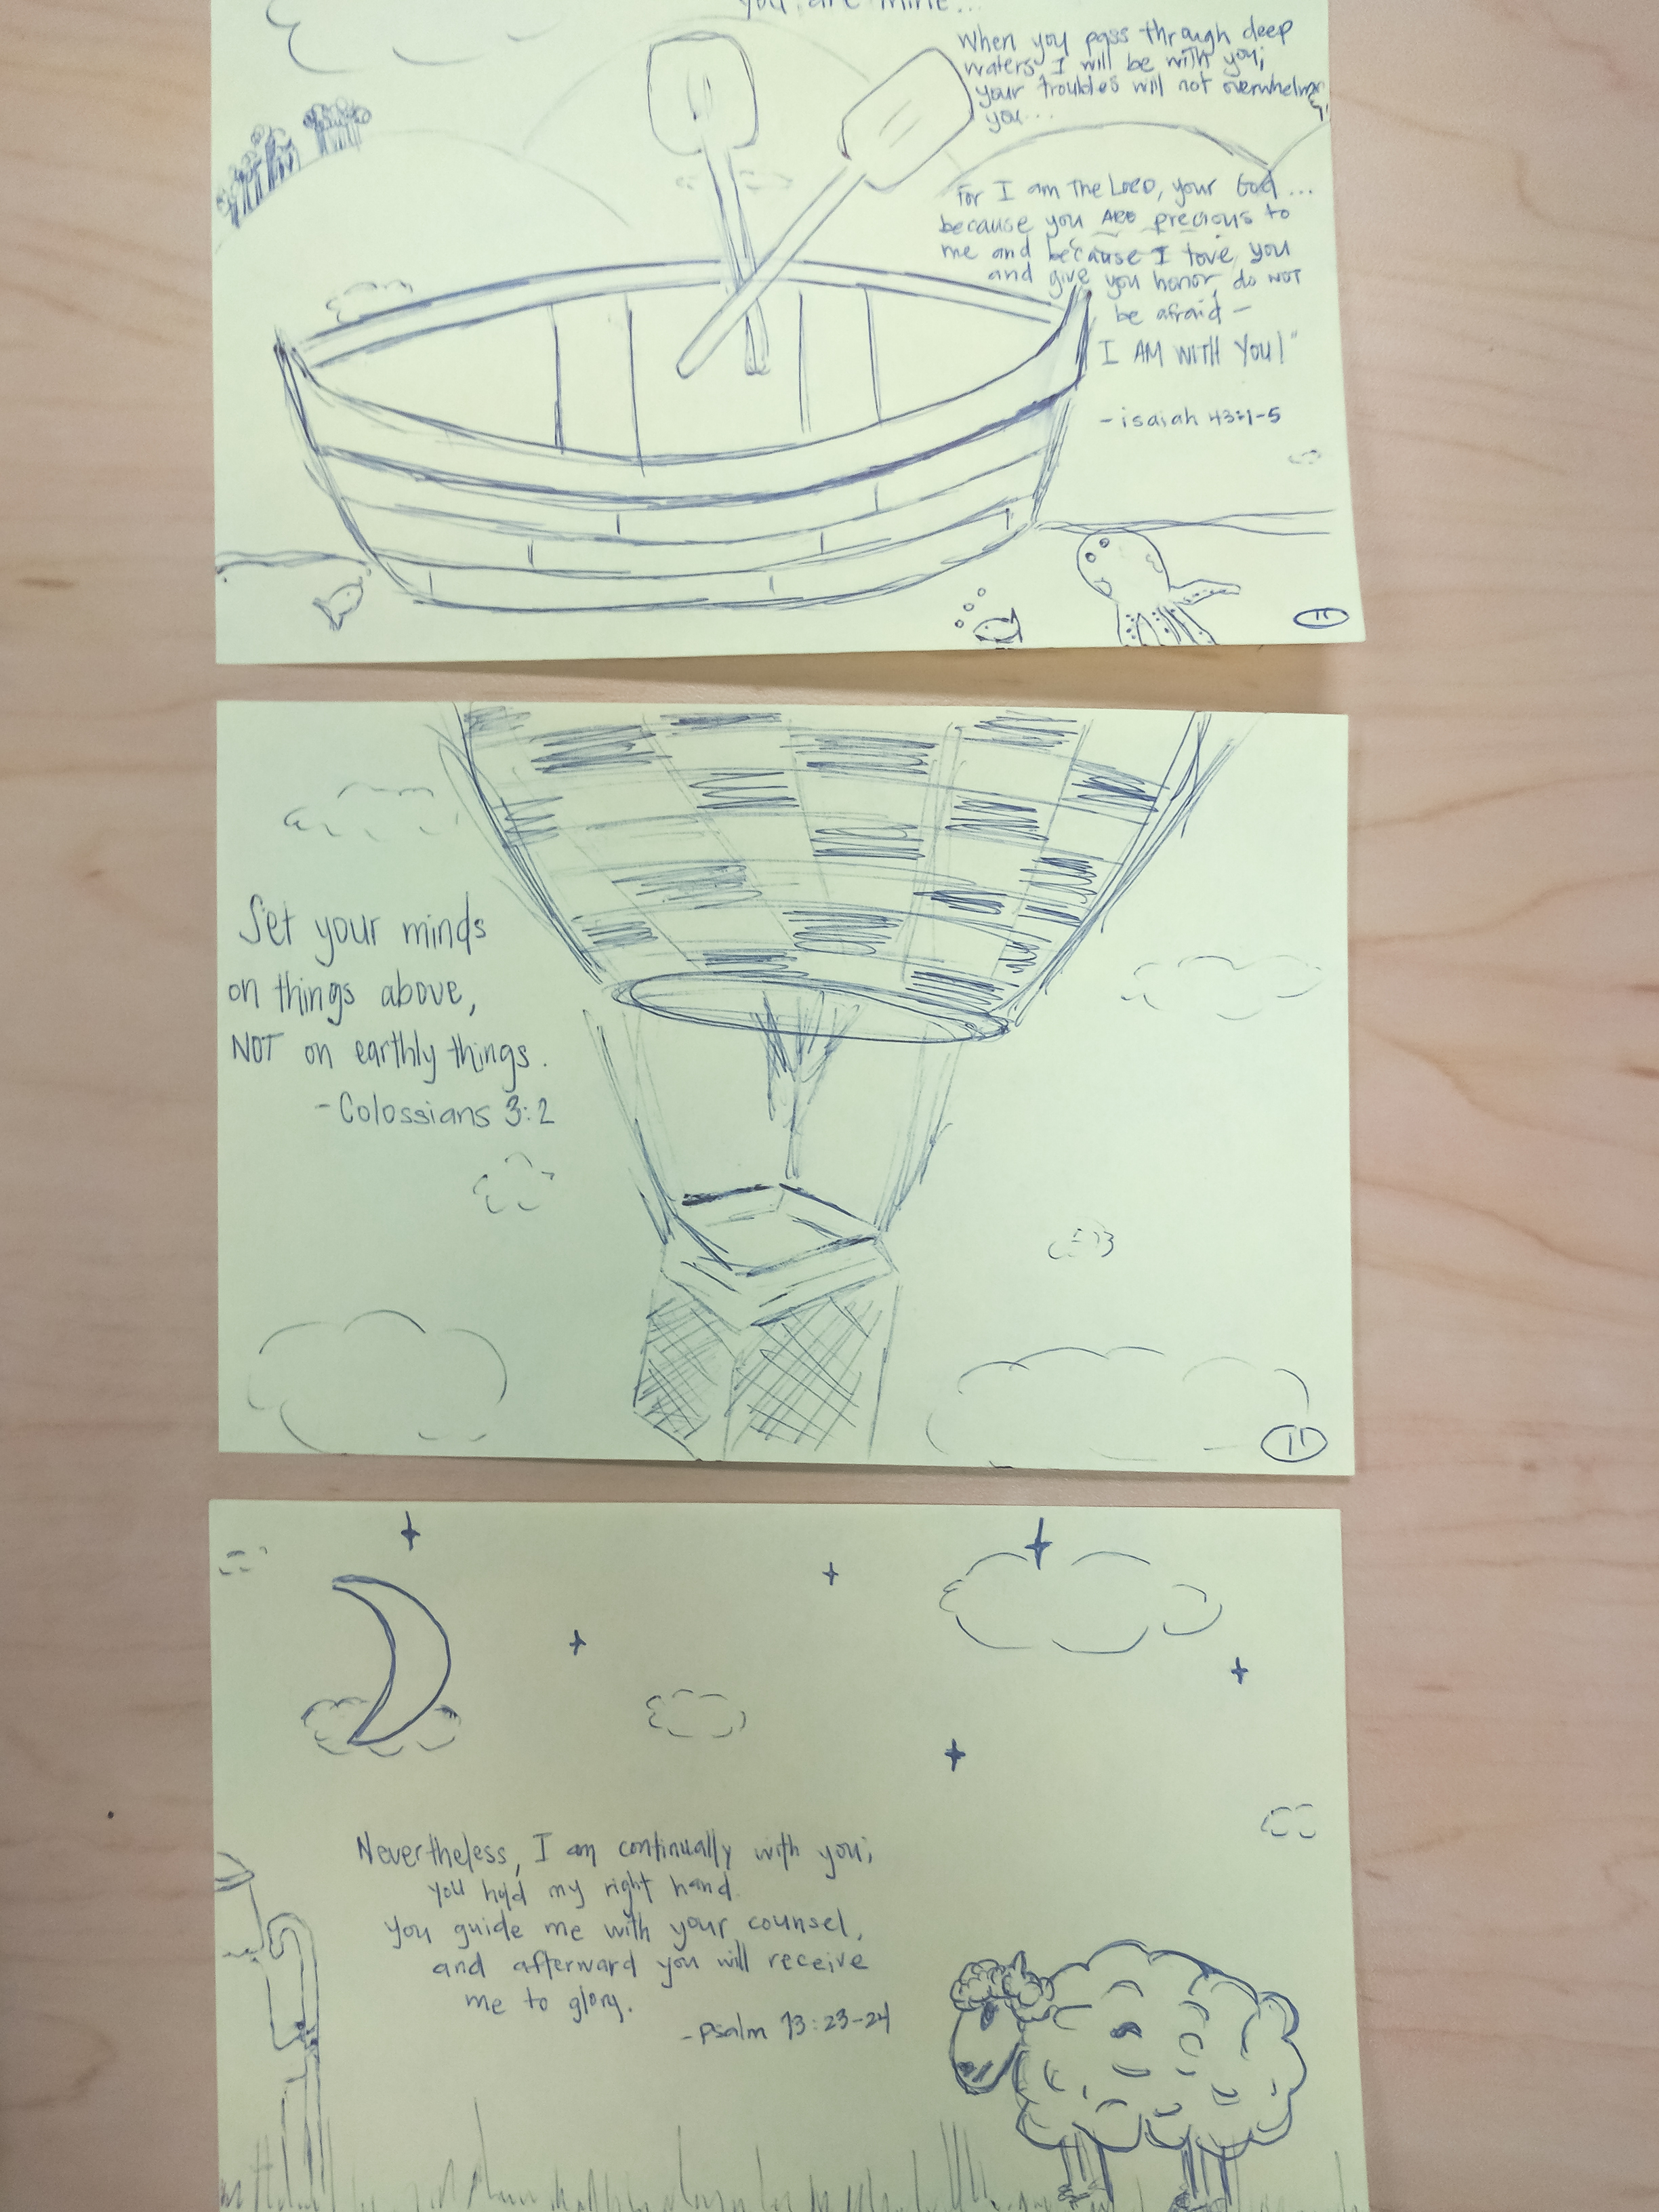 you are mine...
When you pass through deep
waters I will be with you;
your troubles will not overwhelm
you...
For I am The LORD, your God...
because you ARE precious to
me and because I love you
and give you honor, do NOT
be afraid -
I AM WITH YOU!"
- isaiah 43:1-5
Set your minds
on things above,
NOT on earthly things.
- Colossians 3:2
Nevertheless, I am continually with you;
you hold my right hand.
you guide me with your counsel,
and afterward you will receive
me to glory.
- psalm 73:23-24